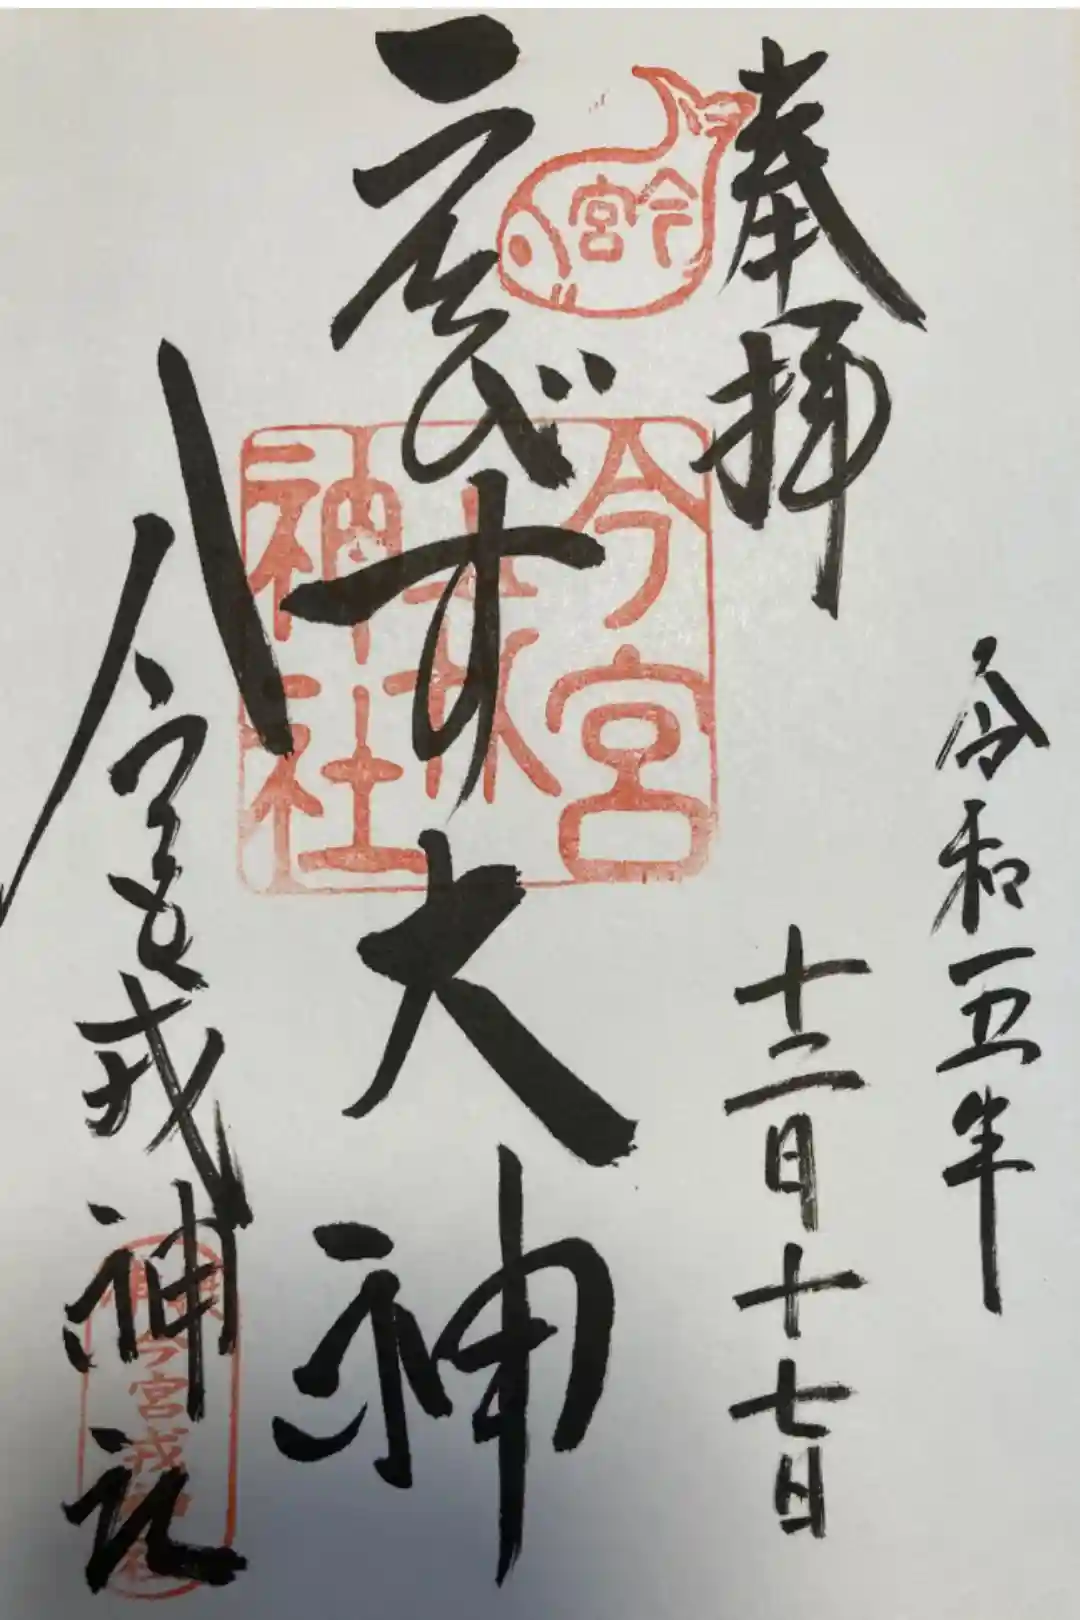 奉拝
令和五年
十二月十七日
今宮
ゑびす大神
今宮戎神社
今宮戎神社
今宮戎神社